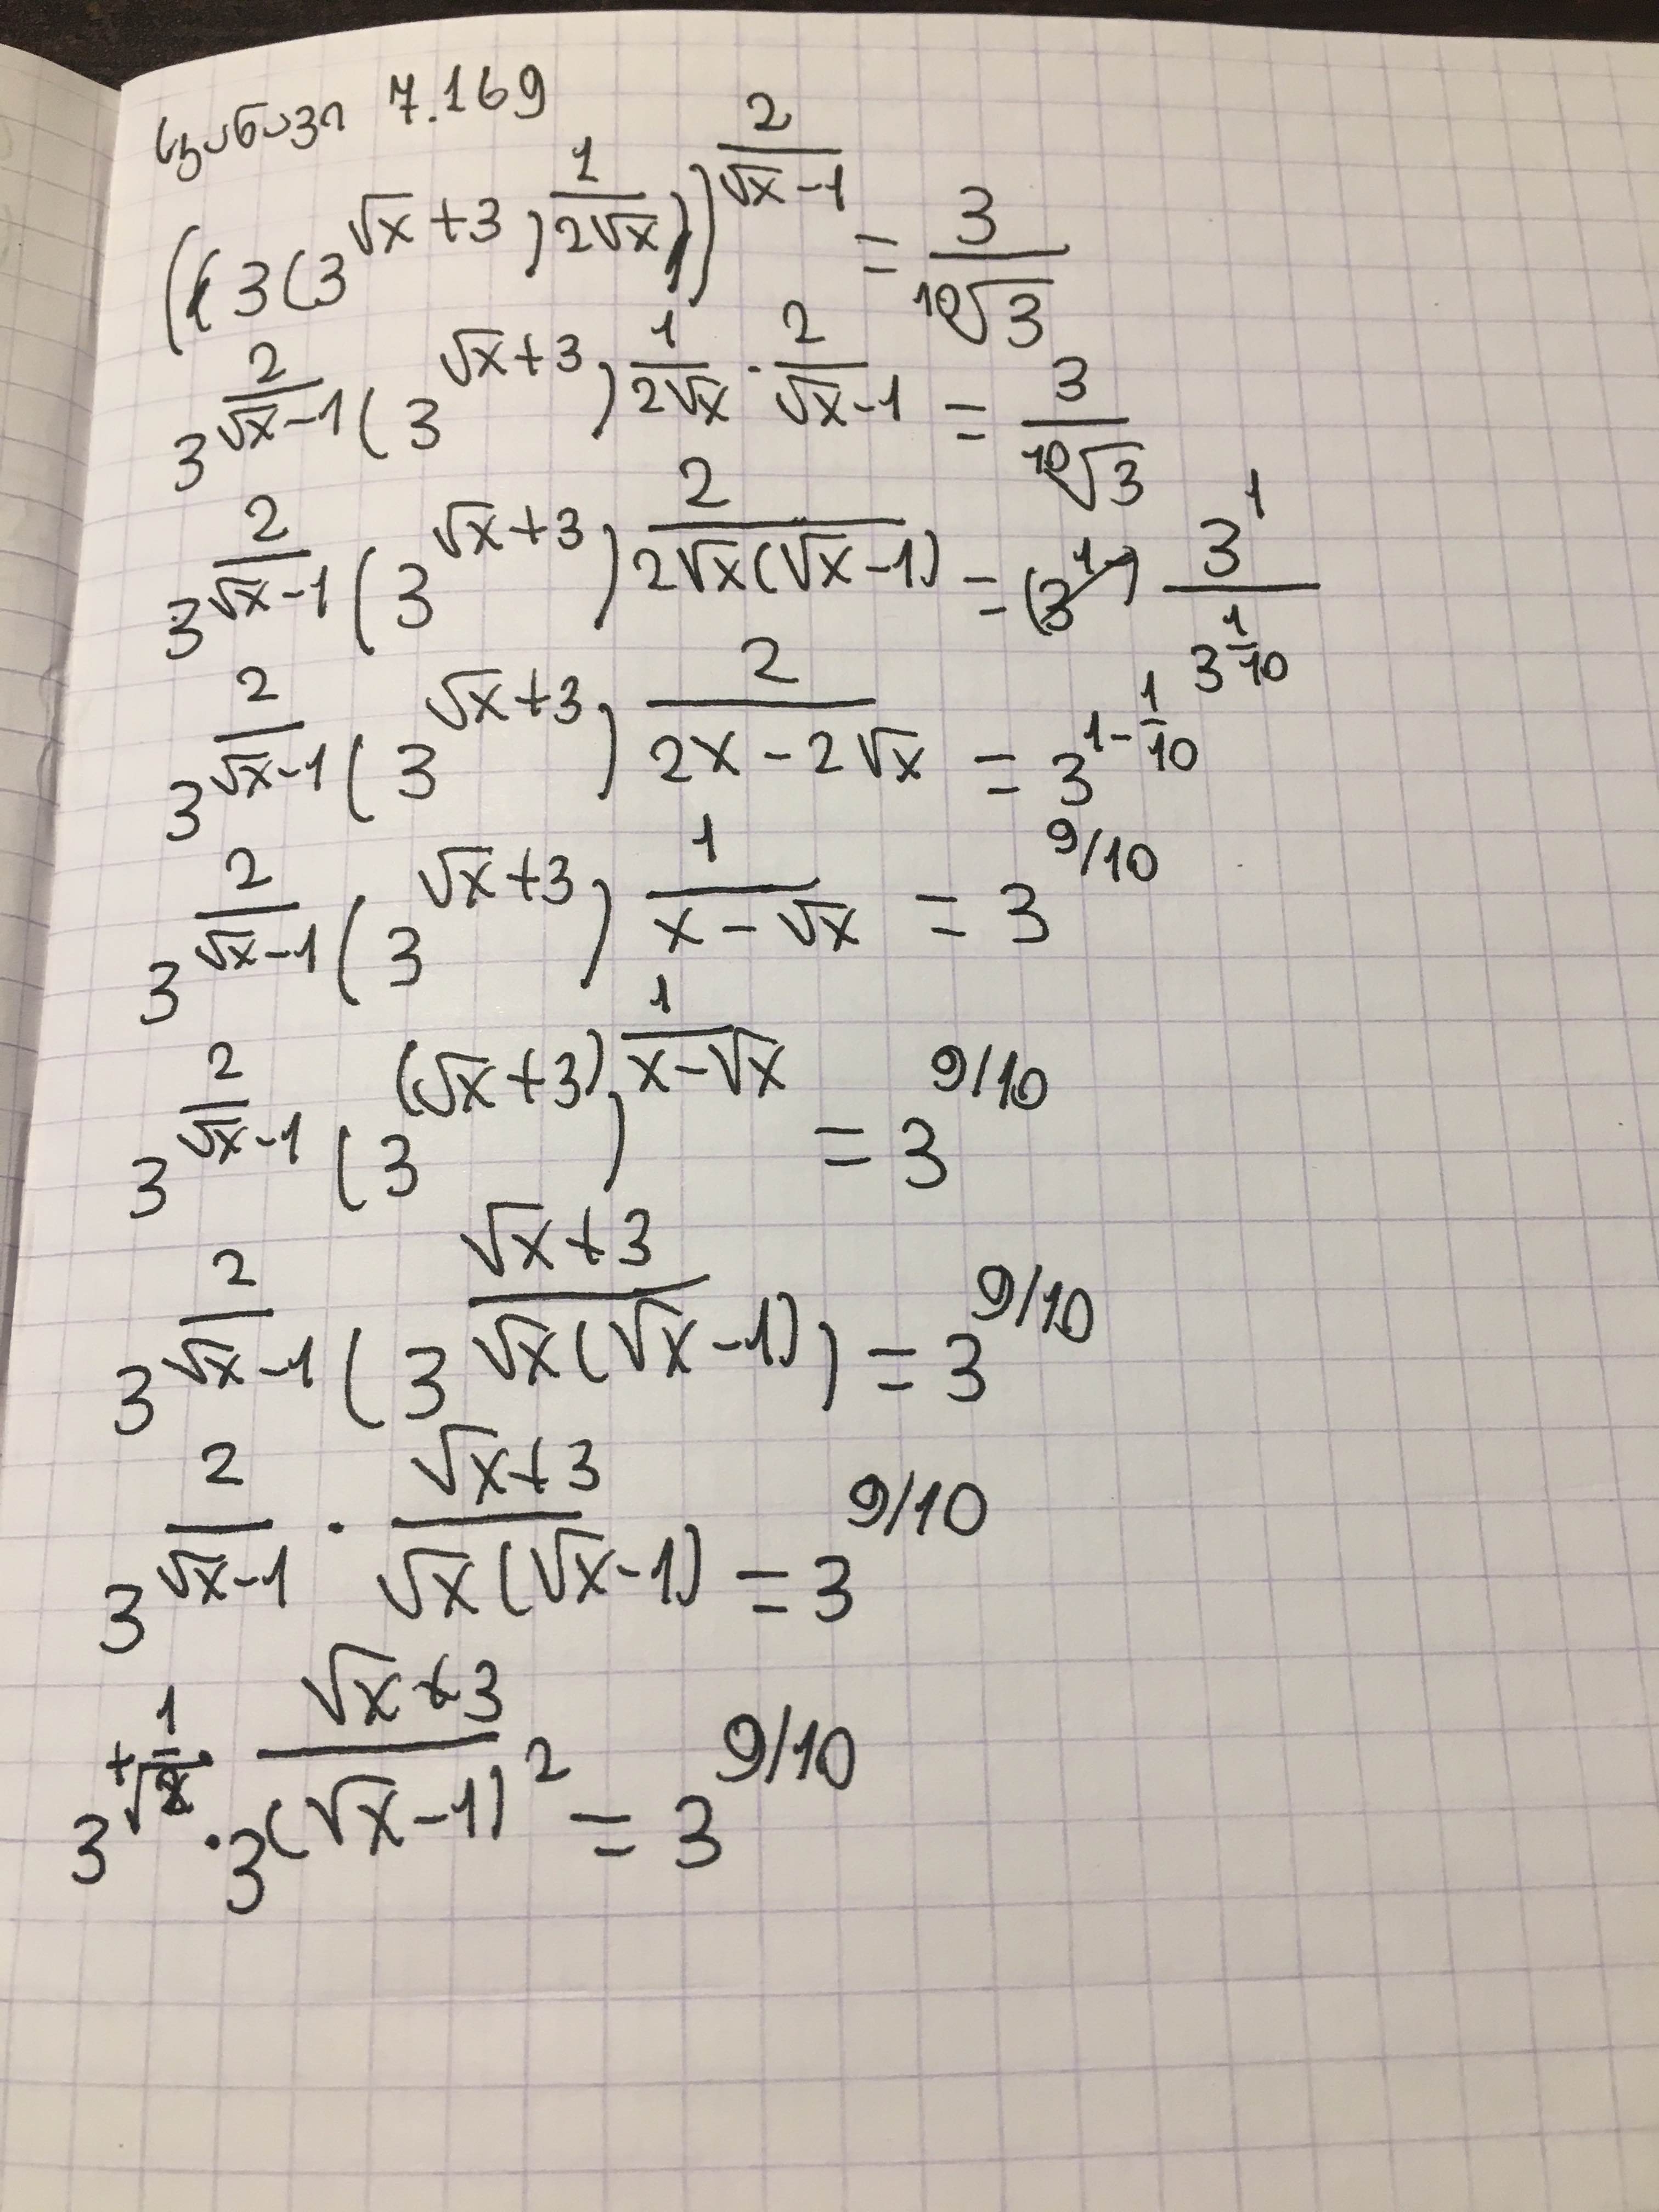 სკანავი 7.169
((3(3^(√x+3))^(1/(2√x))))^(2/(√x-1)) = 3/¹⁰√3
3^(2/(√x-1)) (3^(√x+3))^(1/(2√x) · 2/(√x-1)) = 3/¹⁰√3
3^(2/(√x-1)) (3^(√x+3))^(2/(2√x(√x-1))) = 3^1/3^(1/10)
3^(2/(√x-1)) (3^(√x+3))^(2/(2x-2√x)) = 3^(1-1/10)
3^(2/(√x-1)) (3^(√x+3))^(1/(x-√x)) = 3^(9/10)
3^(2/(√x-1)) (3^((√x+3) 1/(x-√x))) = 3^(9/10)
3^(2/(√x-1)) (3^((√x+3)/(√x(√x-1)))) = 3^(9/10)
3^(2/(√x-1) · (√x+3)/(√x(√x-1))) = 3^(9/10)
3^(+1/√x) · 3^((√x+3)/(√x-1)²) = 3^(9/10)